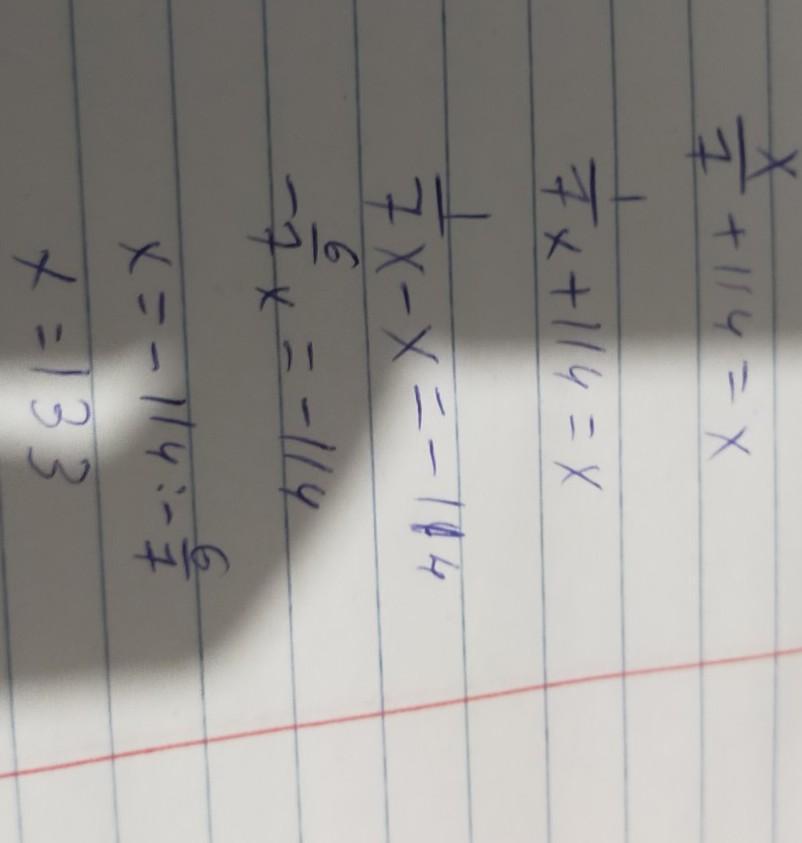 x/7 + 114 = x
1/7 x + 114 = x
1/7 x - x = -114
-6/7 x = -114
x = -114 : -6/7
x = 133